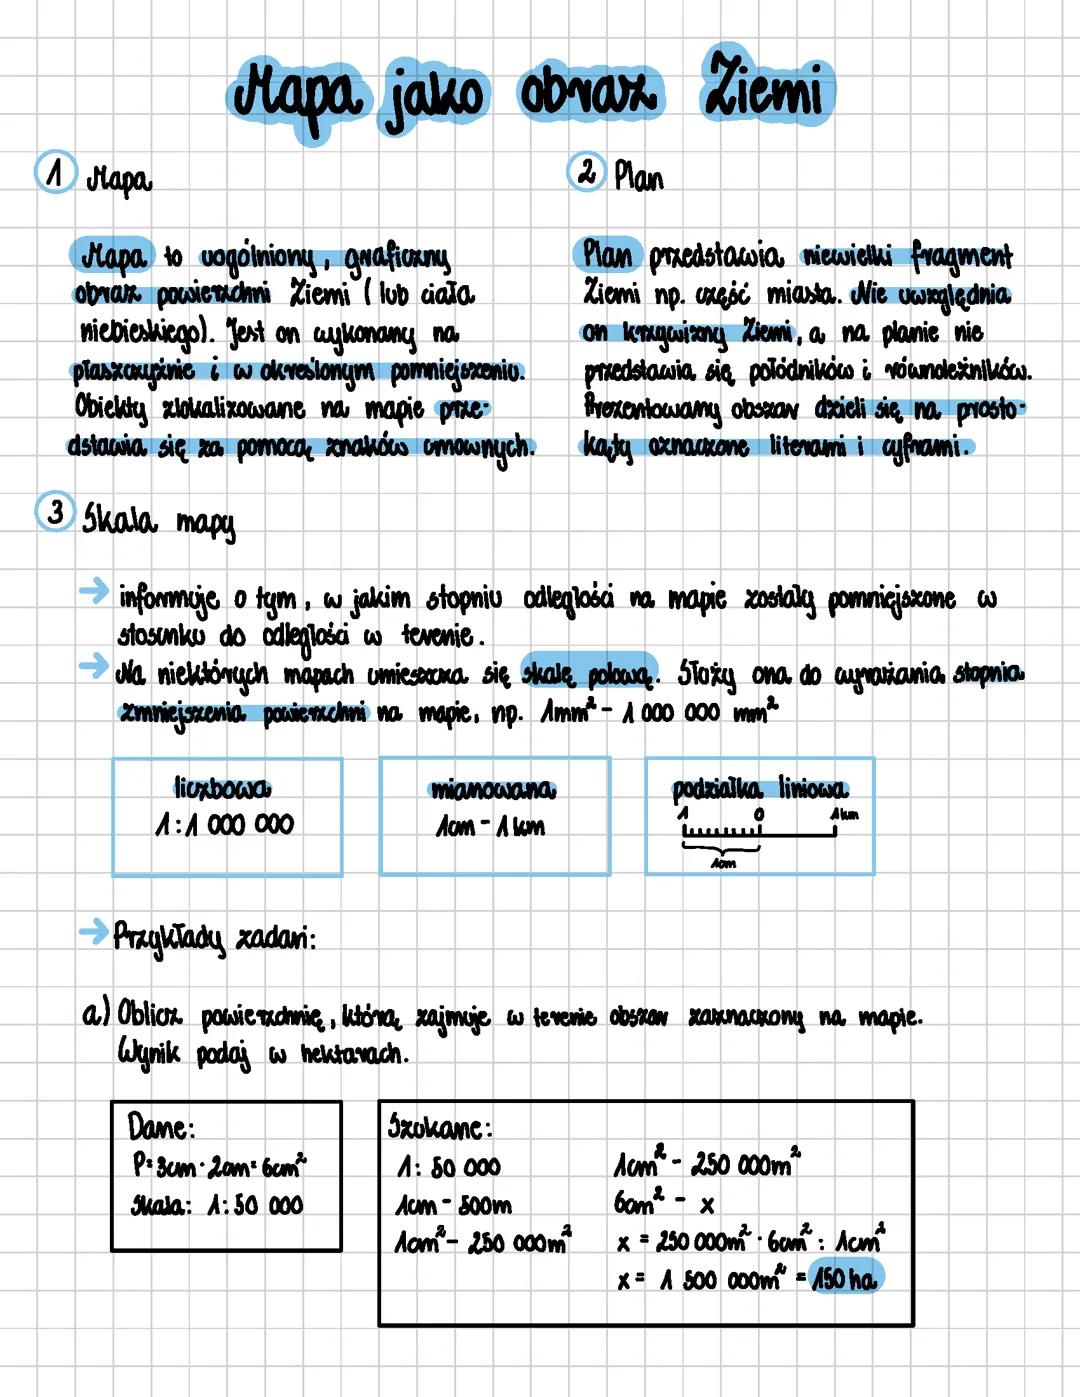 Mapa jako obraz Ziemi
1 Mapa
Mapa to uogólniony, graficzny
obraz powierzchni Ziemi (lub ciała
niebieskiego). Jest on wykonany na
płaszczyźnie i w określonym pomniejszeniu.
Obiekty zlokalizowane na mapie prze-
dstawia się za pomocą znaków umownych.
2 Plan
Plan przedstawia niewielki fragment
Ziemi np. część miasta. Nie uwzględnia
on krzywizny Ziemi, a na planie nie
przedstawia się połódników i równoleżników.
Prezentowany obszar dzieli się na prosto-
kąty oznaczone literami i cyframi.
3 Skala mapy
→ informuje o tym, w jakim stopniu odległości na mapie zostały pomniejszone w
stosunku do odległości w terenie.
→ Na niektórych mapach umieszcza się skalę polową. Służy ona do wyrażania stopnia
zmniejszenia powierzchni na mapie, np. 1mm² - 1 000 000 mm²
liczbowa
1:1 000 000
mianowana
1cm - 1 km
podziałka liniowa
1 0 1 km
1cm
→ Przykłady zadań:
a) Oblicz powierzchnię, którą zajmuje w terenie obszar zaznaczony na mapie.
Wynik podaj w hektarach.
Dane:
P= 3cm · 2cm= 6cm²
Skala: 1:50 000
Szukane:
1: 50 000
1cm - 500m
1cm² - 250 000m²
1cm² - 250 000m²
6cm² - x
x = 250 000m² · 6cm² : 1cm²
x = 1 500 000m² = 150 ha